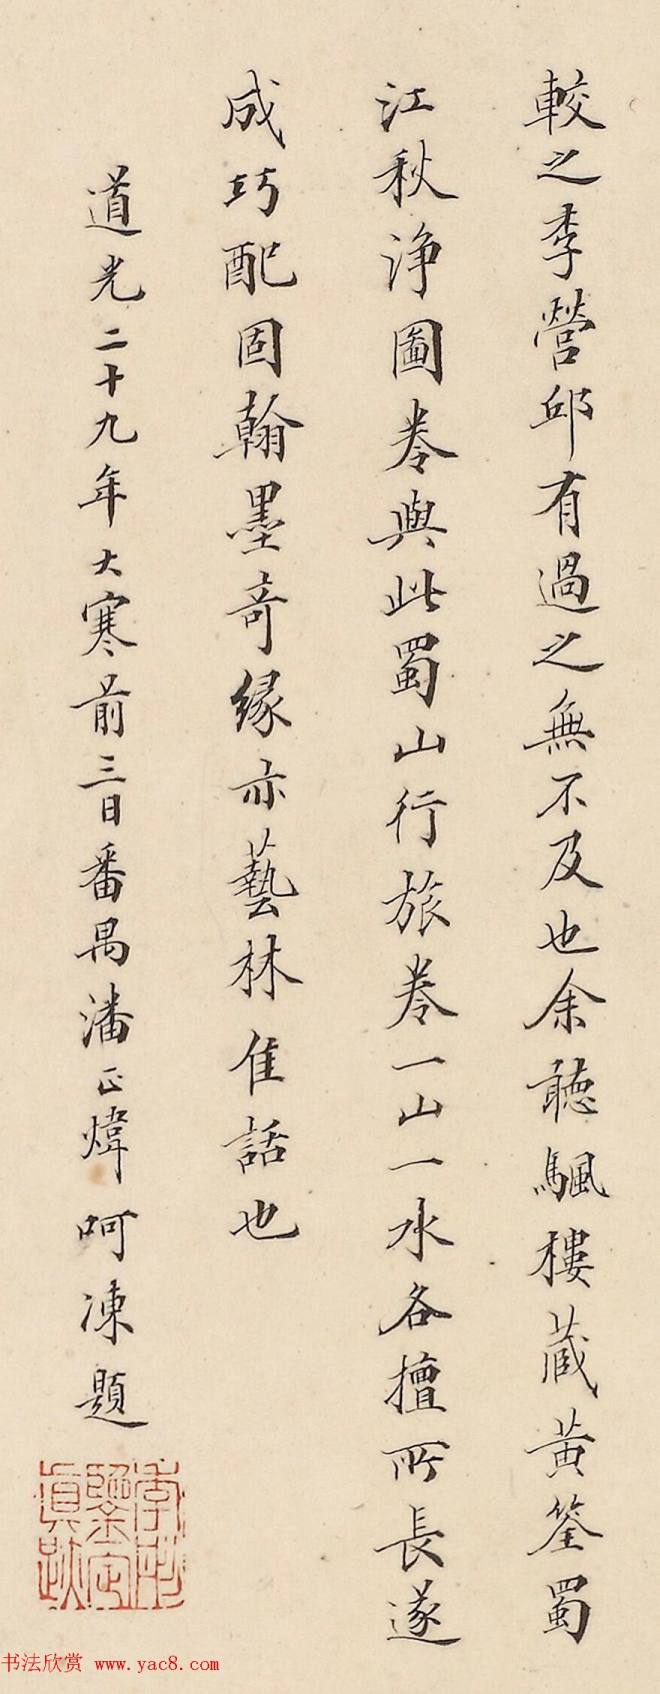 較之李營邱有過之無不及也余聽颿樓蔵黃筌蜀
江秋淨圖卷與此蜀山行旅卷一山一水各擅所長遂
成巧配固翰墨奇緣亦藝林佳話也
道光二十九年大寒前三日番禺潘正煒呵凍題
季彤鑒定真跡
书法欣赏 www.yac8.com